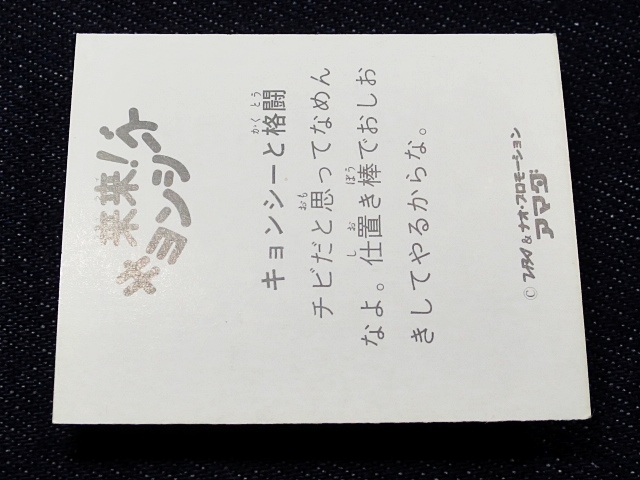 来来!
キョンシーズ
キョンシーと格闘
かくとう
チビだと思ってなめん
おも
なよ。仕置き棒でおしお
しお
ぼう
きしてやるからな。
© フタバ & ナオ・プロモーション
アマダ